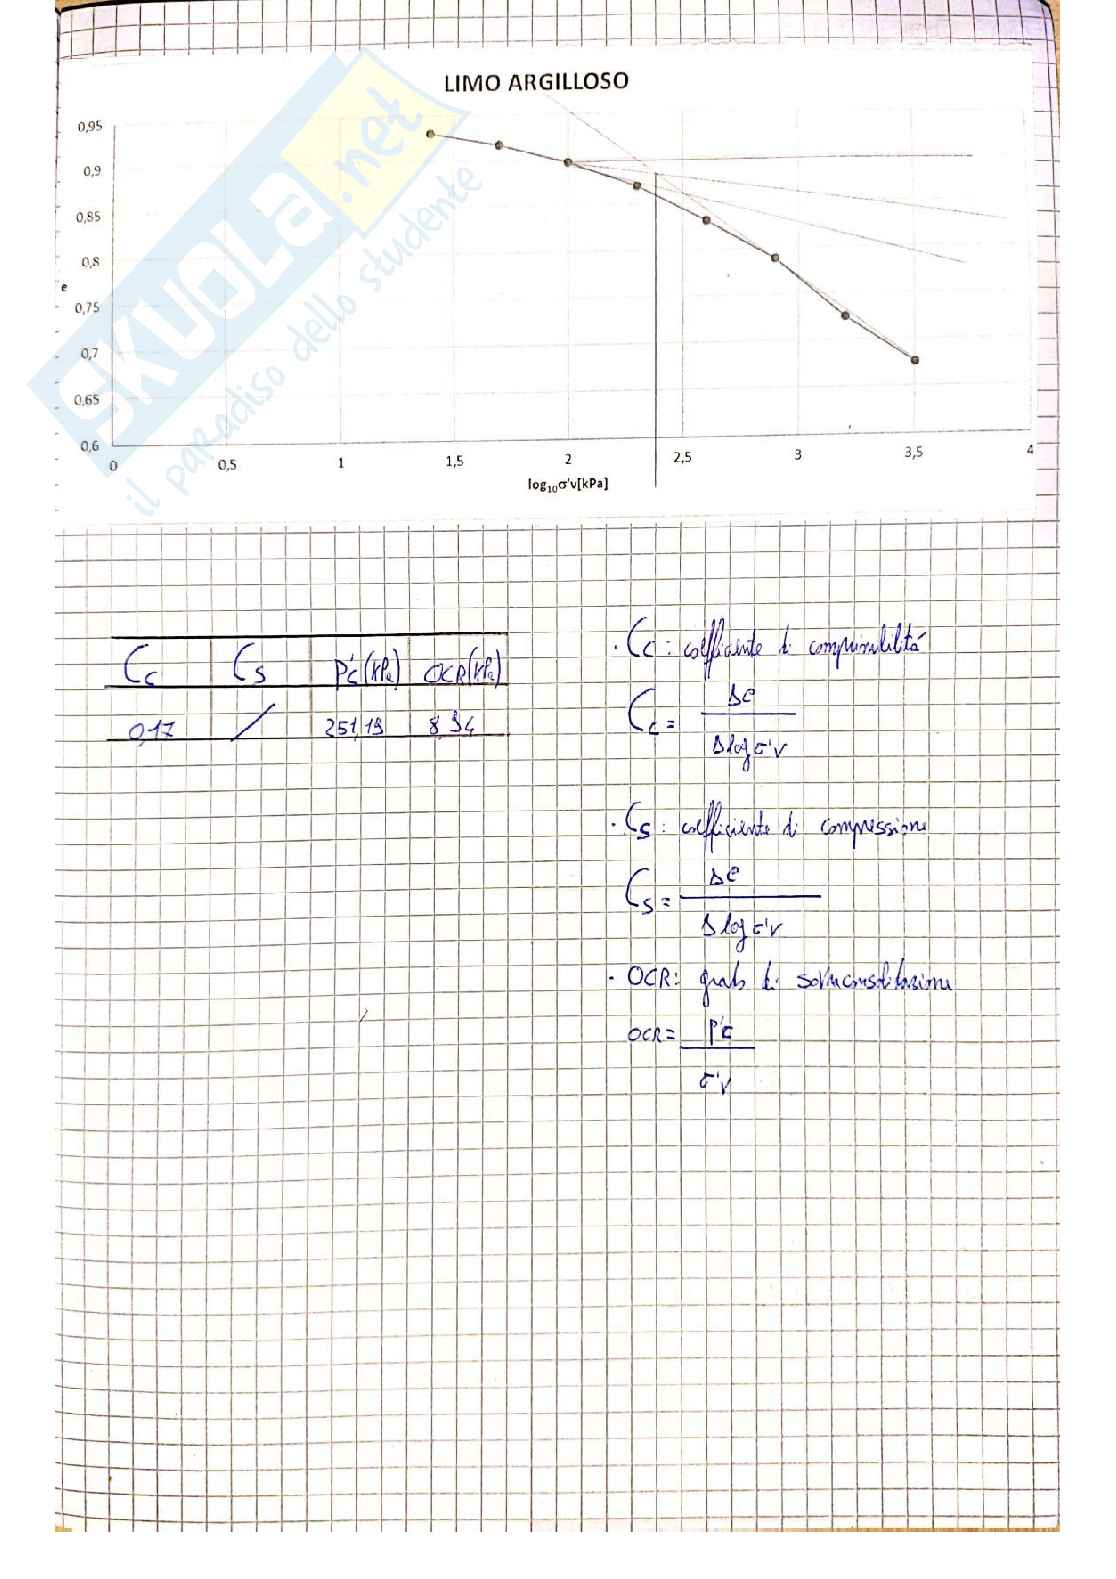 LIMO ARGILLOSO
0,95
0,9
0,85
0,8
e
0,75
0,7
0,65
0,6
0 0,5 1 1,5 2 2,5 3 3,5 4
log₁₀σ'v[kPa]
SKUOLA.net
il paradiso dello studente
Cc Cs P'c (kPa) OCR (kPa)
0,17 / 251,19 8,94
· Cc: coefficiente di comprimibilitá
Cc = Δe
Δlog σ'v
· Cs: coefficiente di compressione
Cs = Δe
Δlog σ'v
· OCR: grado di sovraconsolidazione
OCR = P'c
σ'v